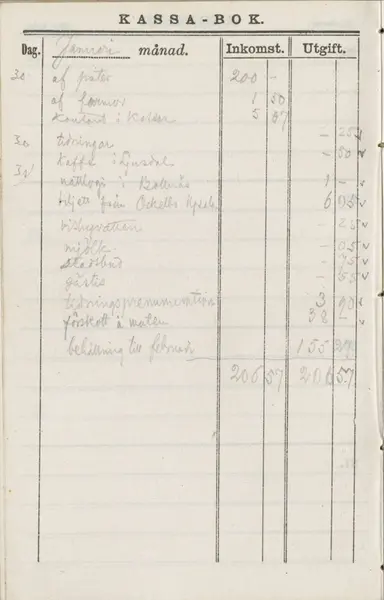 KASSA-BOK.
Dag. Januari månad. Inkomst. Utgift.
30 af pater 200 -
af farmor 1 50
Kontant i Kassan 5 07
30 tidningar - 25
kaffe i Ljusdal - 50
31 nattlogi i Bollnäs 1 -
biljett från Ockelbo Upsala 6 05
vichyvatten - 25
mjölk - 05
stadsbud - 75
gästis - 55
tidningsprenumeration 3 90
förskott å maten 38 -
behållning till februari 155 27
206 57 206 57